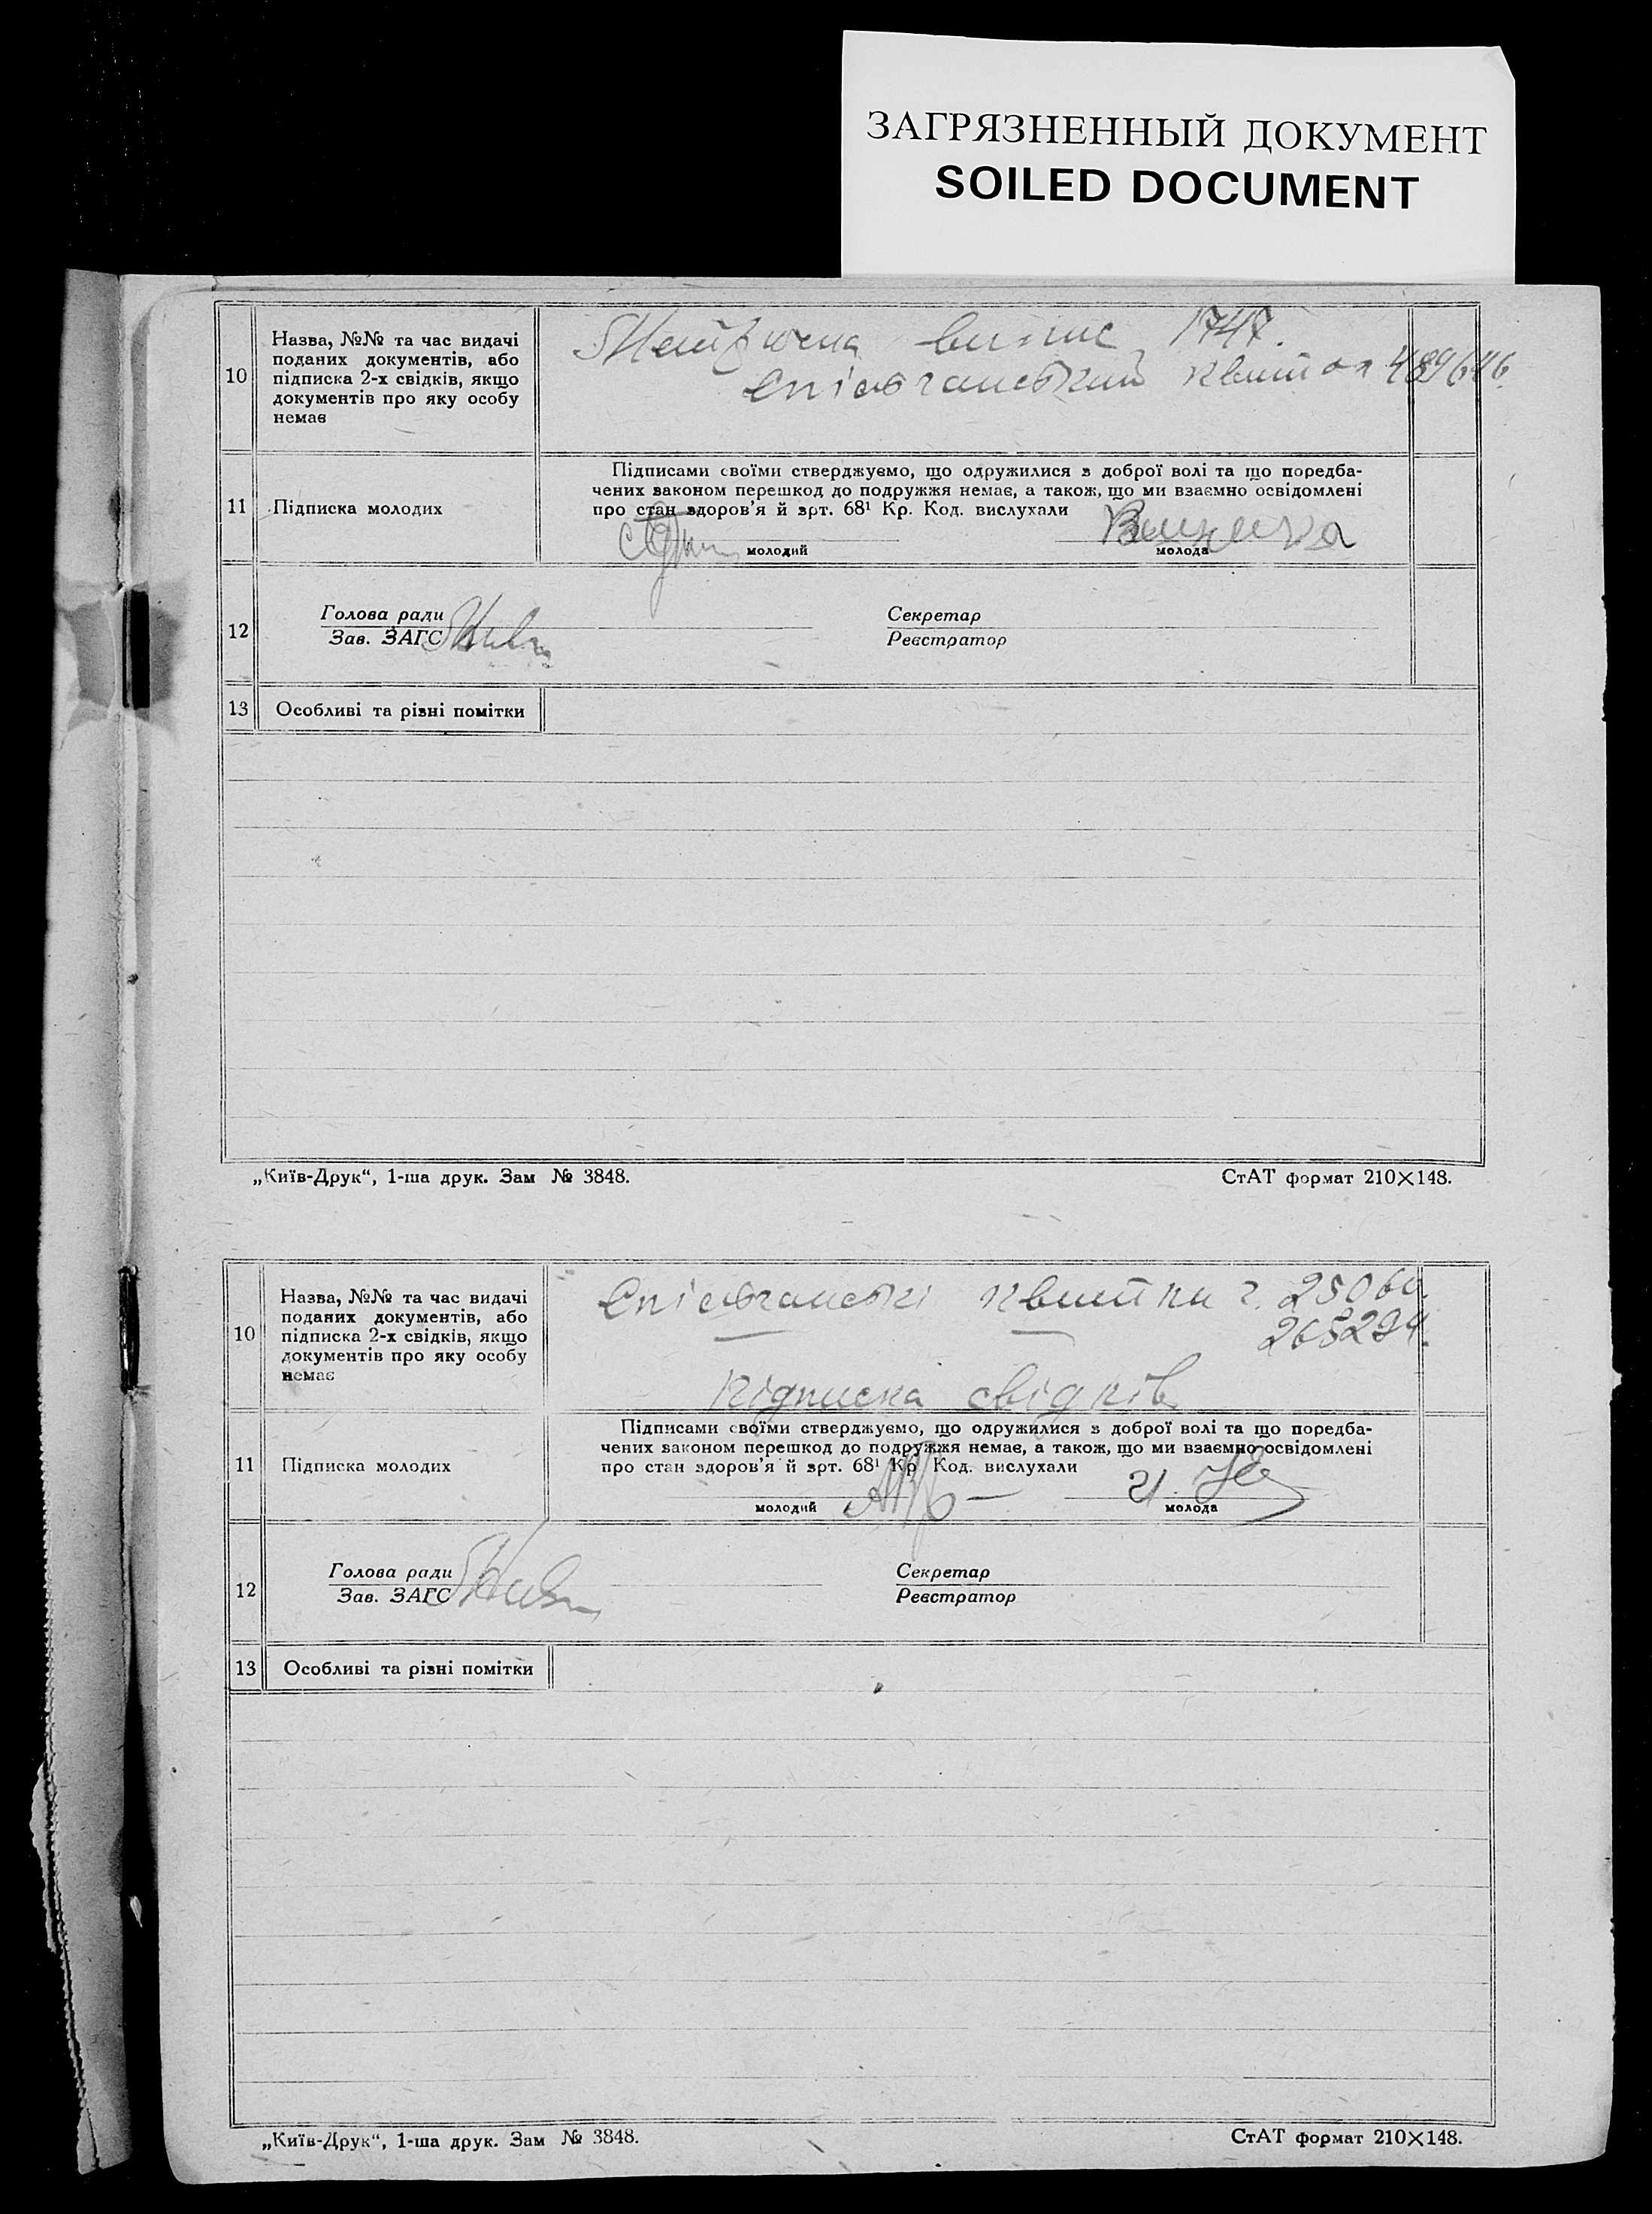 ЗАГРЯЗНЕННЫЙ ДОКУМЕНТ
SOILED DOCUMENT
10
Назва, №№ та час видачі
поданих документів, або
підписка 2-х свідків, якщо
документів про яку особу
немає
Метрична випис 1747.
Спілчанський квиток 489646.
11
Підписка молодих
Підписами своїми стверджуємо, що одружилися з доброї волі та що поредба-
чених законом перешкод до подружжя немає, а також, що ми взаємно освідомлені
про стан здоров'я й зрт. 68¹ Кр. Код. вислухали
молодий
молода
12
Голова ради
Зав. ЗАГС
Секретар
Реєстратор
13
Особливі та різні помітки
„Київ-Друк“, 1-ша друк. Зам № 3848.
СтАТ формат 210×148.
10
Назва, №№ та час видачі
поданих документів, або
підписка 2-х свідків, якщо
документів про яку особу
немає
Спілчанські квитки г. 25060.
265294.
Підписка свідків
11
Підписка молодих
Підписами своїми стверджуємо, що одружилися з доброї волі та що поредба-
чених законом перешкод до подружжя немає, а також, що ми взаємно освідомлені
про стан здоров'я й зрт. 68¹ Кр Код. вислухали
молодий
молода
12
Голова ради
Зав. ЗАГС
Секретар
Реєстратор
13
Особливі та різні помітки
„Київ-Друк“, 1-ша друк. Зам № 3848.
СтАТ формат 210×148.